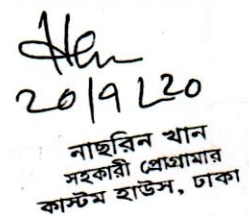 20/9/20
নাছরিন খান
সহকারী প্রোগ্রামার
কাস্টম হাউস, ঢাকা